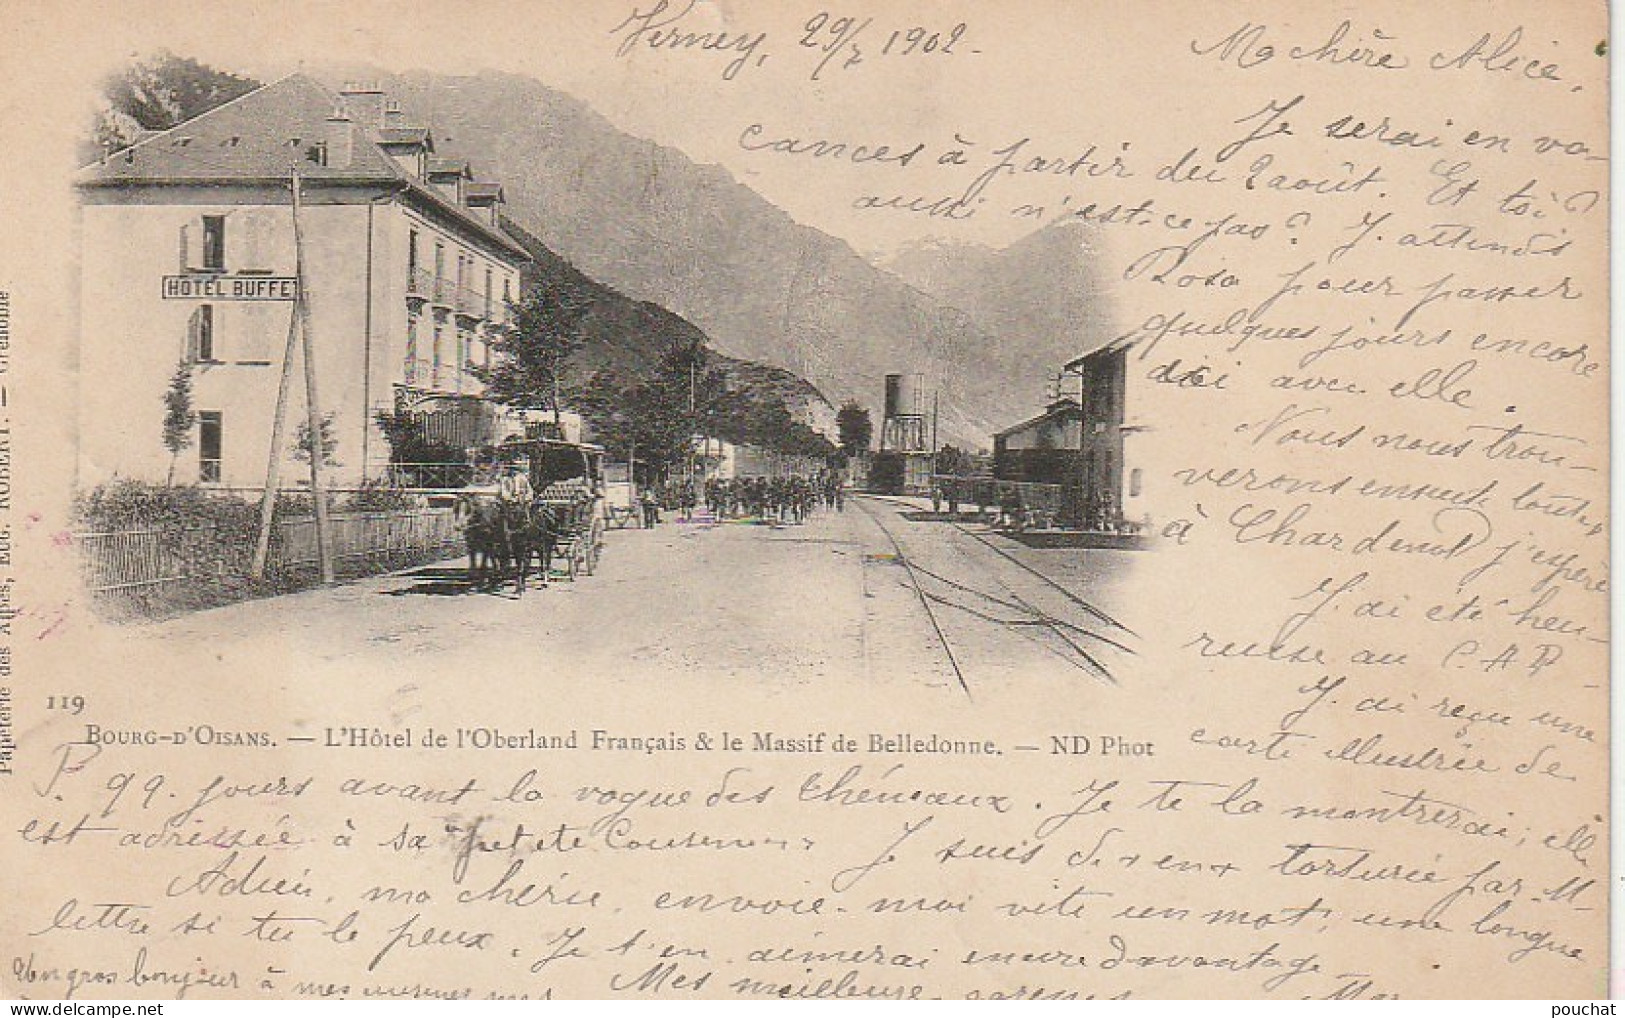 Verney, 29/7 1902.
Ma chère Alice,
Je serai en va-
cances à partir du 2 août. Et toi
aussi n'est-ce pas? J'attends
Rosa pour passer
quelques jours encore
ici avec elle.
Nous nous trou-
verons ensuite toutes
à Chardenal j'espère
J'ai été heu-
reuse au C.A.P.
J'ai reçu une
carte illustrée de
P. 99. jours avant la vogue des Chéneaux. Je te la montrerai; elle
est adressée à sa petite
Je suis torturée par M-
Adieu, ma chérie, envoie-moi vite un mot, une longue
lettre si tu le peux. Je t'en aimerai encore davantage.
Un gros bonjour à mes
Mes meilleures caresses
HOTEL BUFFET
Papeterie des Alpes, Eug. ROBERT. — Grenoble
119
Bourg-d'Oisans. — L'Hôtel de l'Oberland Français & le Massif de Belledonne. — ND Phot
pouchat